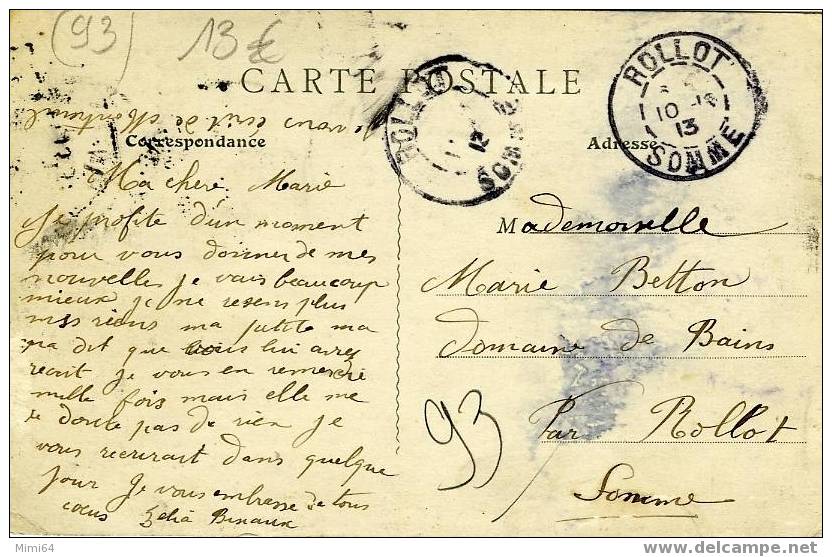 (93) 13 €
CARTE POSTALE
Correspondance
Adresse
ROLLOT
10
13
SOMME
ROLLOT
SOMME
Ma chere Marie
Je profite d'un moment
pour vous donner de mes
nouvelles je vais beaucoup
mieux je ne resens plus
mes riens ma petite ma
pa dit que vous lui avez
je vous en remercie
mille fois mais elle me
doute pas de rien je
vous recrirait dans quelque
jour je vous embrasse de tous
cœur Zelia Binaux
Mademoiselle
Marie Betton
Domaine de Bains
Par Rollot
Somme
93
Mimi64
www.delcampe.net